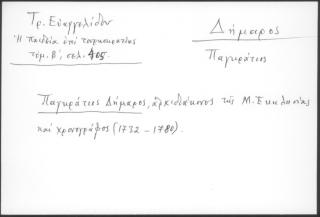 Τρ. Ευαγγελίδου
Δήμαρος
Ἡ παιδεία ἐπὶ τουρκοκρατίας
Παγκράτιος
τόμ. Β', σελ. 405.
Παγκράτιος Δήμαρος, ἀρχιδιάκονος τῆς Μ. Ἐκκλησίας
καὶ χρονογράφος (1732 - 1780).